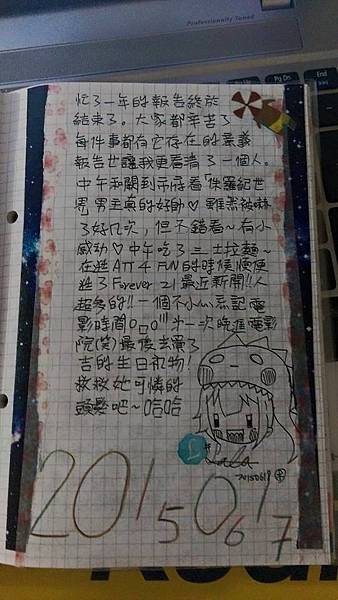 Professionally Tuned
Pg Dn
End
忙了一年的報告終於
結束了。大家都辛苦了
每件事都有它存在的意義
報告也讓我更看清了一個人。
中午和闆到京站看「侏羅紀世
界」男主真的好帥♡ 雖然被嚇
了好几次，但不錯看~有小
感动♡中午吃了三士拉麵~
在逛ATT 4 FUN的時候順便
逛了Forever 21 最近新開!!人
超多的!! 一個不小心忘記電
影時間O口O!!!第一次晚進電影
院(笑)最後去買了
吉的生日礼物!
救救她可憐的
頭髮吧~哈哈
Lala
20150618
20150617